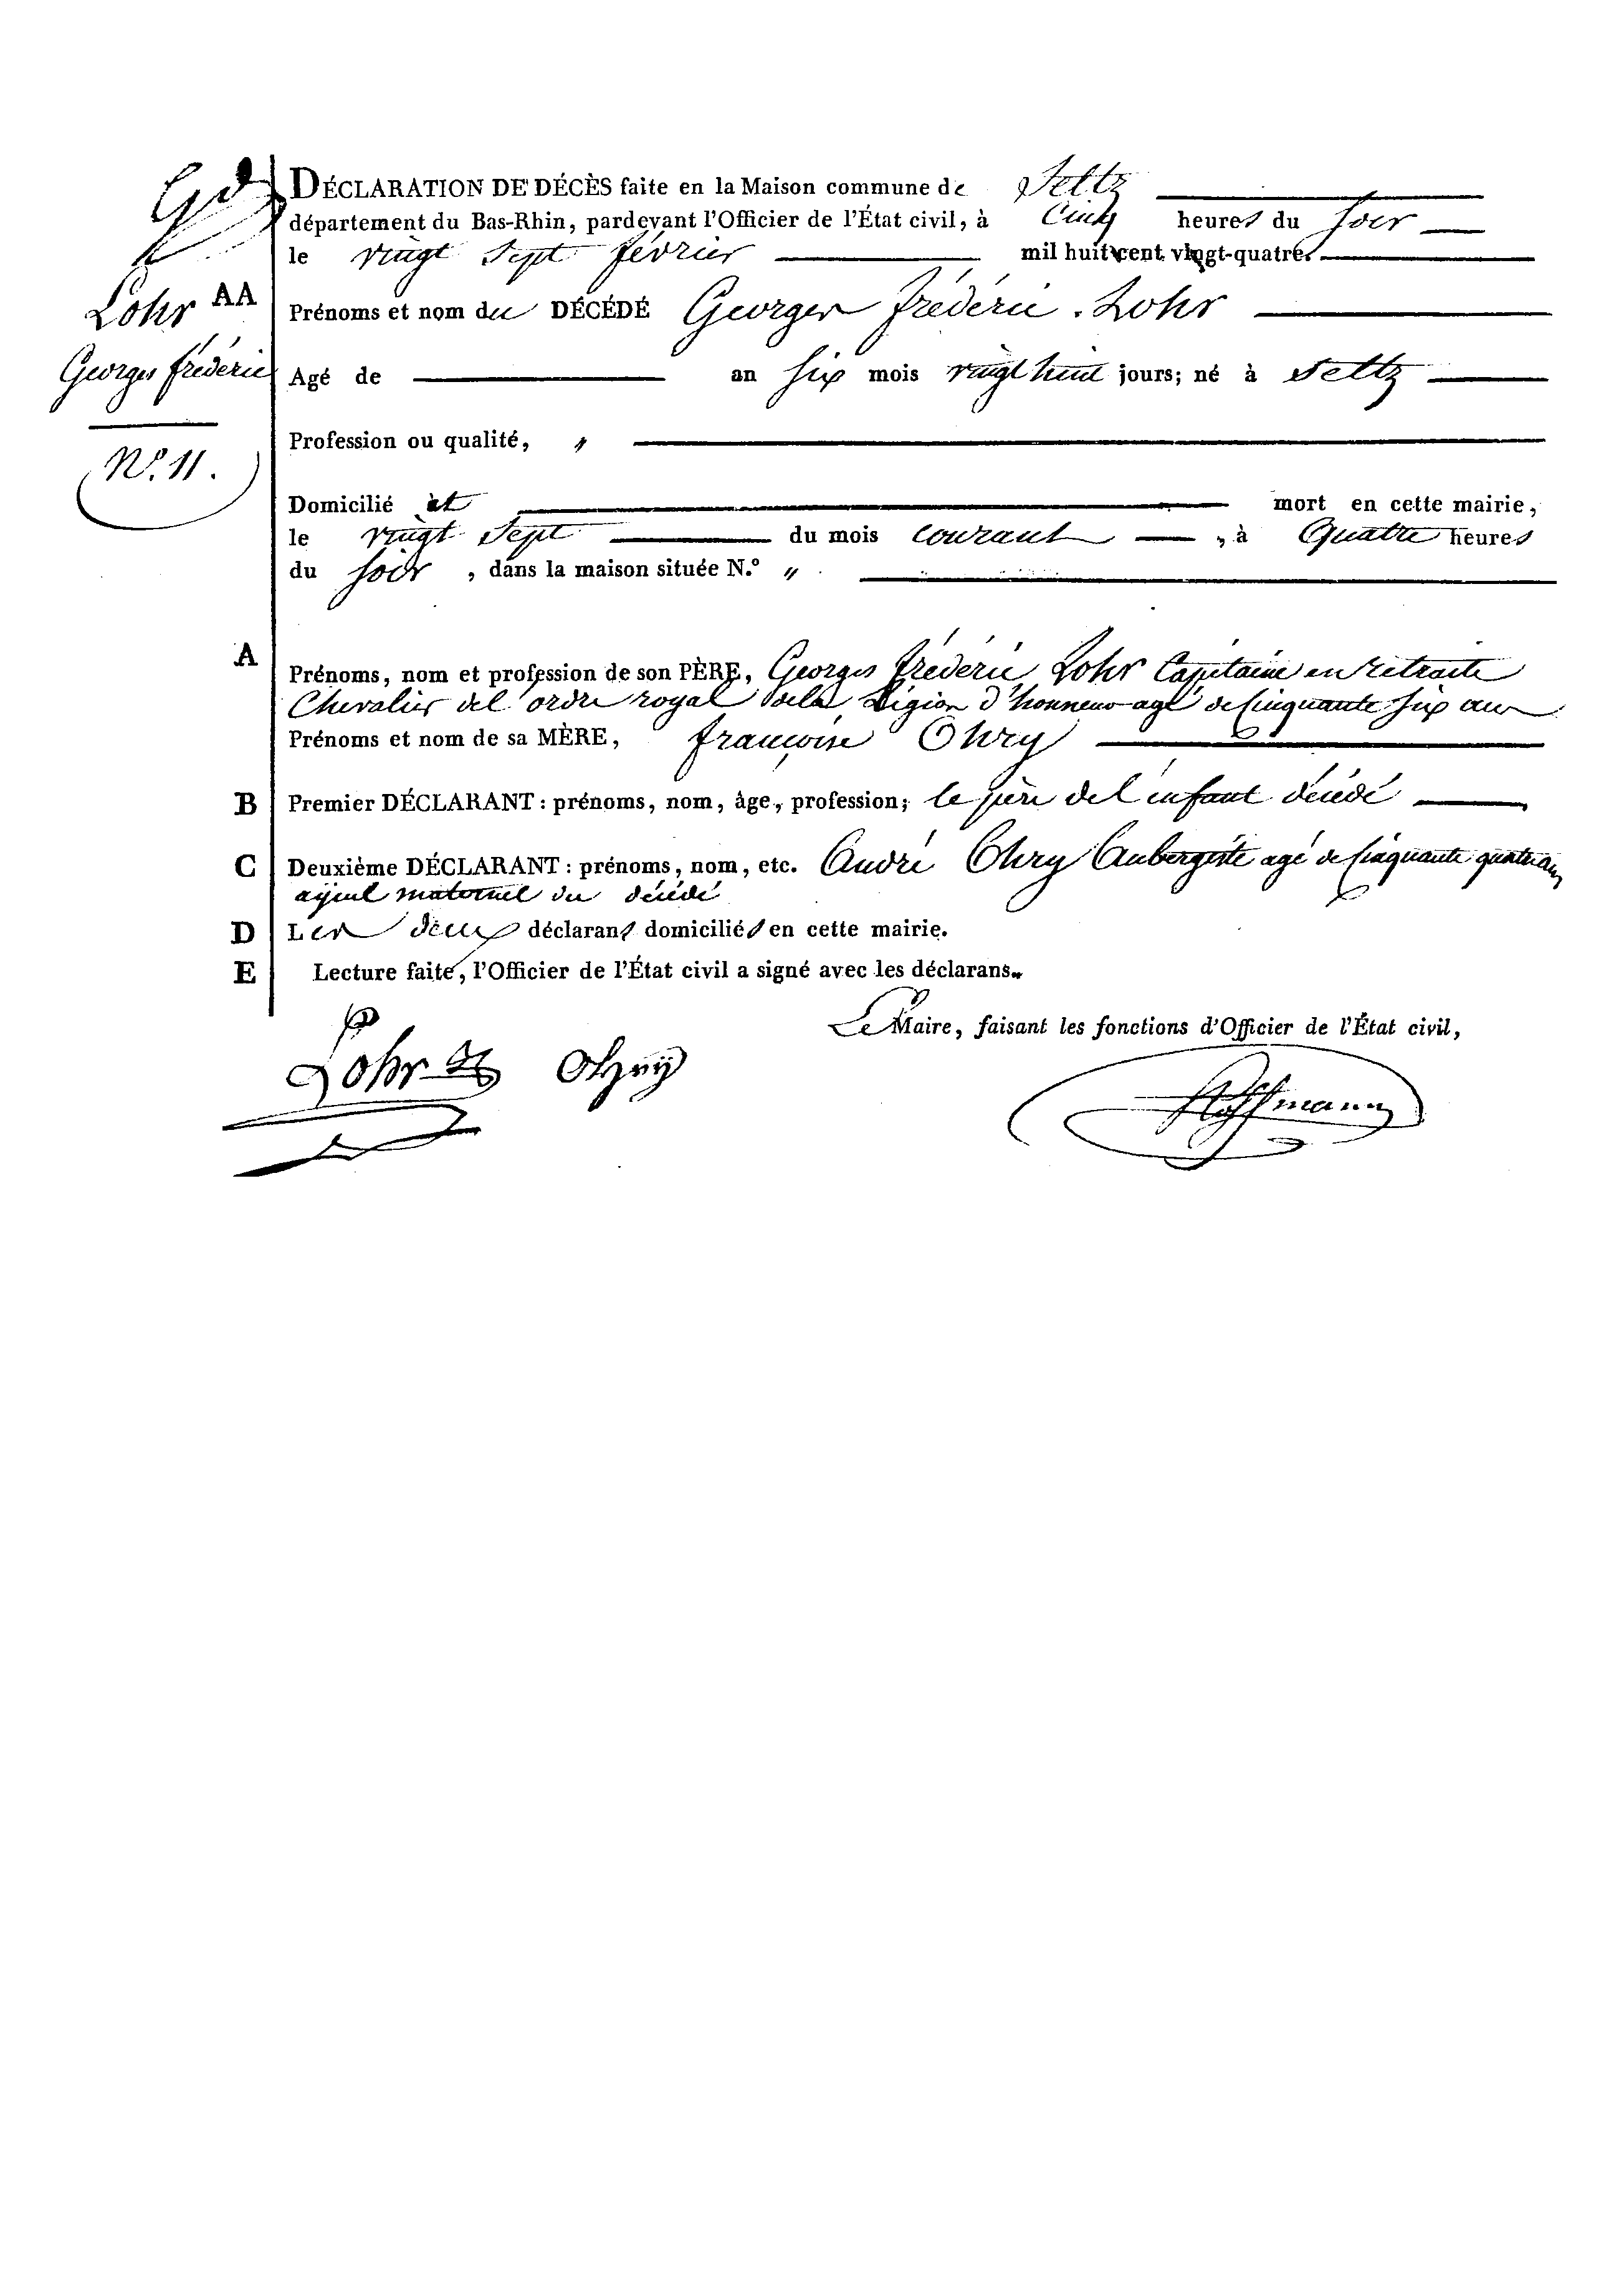 Gd
DÉCLARATION DE DÉCÈS faite en la Maison commune de Seltz
département du Bas-Rhin, pardevant l'Officier de l'État civil, à Cinq heures du soir
le vingt Sept fevrier mil huit cent vingt-quatre.
Lohr AA
Georges fréderic
N.º 11.
Prénoms et nom du DÉCÉDÉ Georges fréderic Lohr
Agé de an six mois vingt huit jours; né à Seltz
Profession ou qualité, "
Domicilié et mort en cette mairie,
le vingt Sept du mois courant, à Quatre heures
du soir, dans la maison située N.º "
A Prénoms, nom et profession de son PÈRE, Georges fréderic Lohr Capitaine en retraite
Chevalier del'ordre royal dela Légion d'honneur agé de Cinquante six ans
Prénoms et nom de sa MÈRE, françoise Ohry
B Premier DÉCLARANT : prénoms, nom, âge, profession; le père del'enfant décédé
C Deuxième DÉCLARANT : prénoms, nom, etc. André Ohry Aubergiste agé de Cinquante quatre ans
ayeul maternel du décédé
D Les deux déclarans domiciliés en cette mairie.
E Lecture faite, l'Officier de l'État civil a signé avec les déclarans.
Le Maire, faisant les fonctions d'Officier de l'État civil,
Lohr Ohry Hoffmann